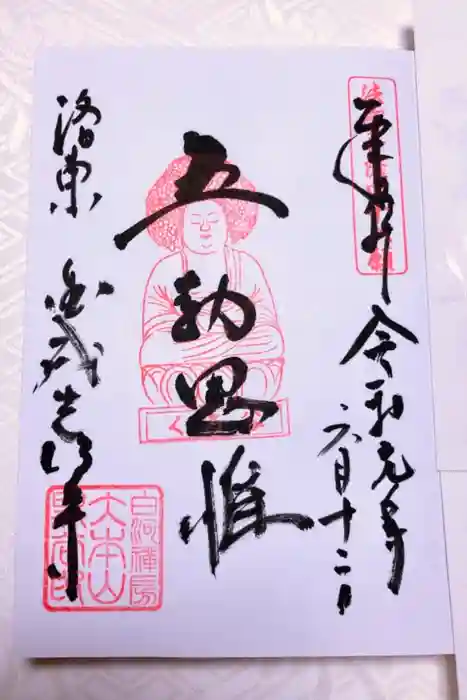 奉拝
令和元年
六月十二日
五劫思惟
洛東
金戒光明寺
白河禅房
大本山